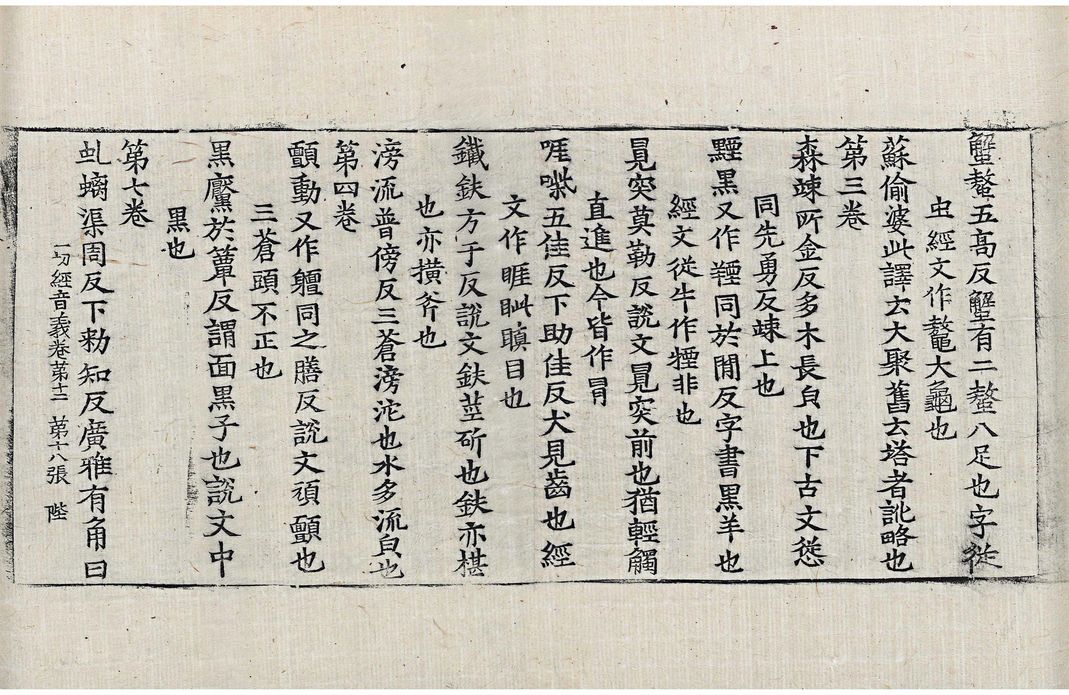 蟹螯五高反蟹有二螯八足也字從
虫經文作鼇大龜也
蘇偷婆此譯云大聚舊云塔者訛略也
第三卷
森竦所金反多木長皃也下古文愯
同先勇反竦上也
黫黑又作羥同於閒反字書黑羊也
經文從牛作㹩非也
冒突莫勒反說文冒突前也猶輕觸
直進也今皆作冒
啀喍五佳反下助佳反犬見齒也經
文作睚眦瞋目也
鐵鈇方于反說文鈇莝斫也鈇亦椹
也亦撗斧也
滂流普傍反三蒼滂沱也水多流皃也
第四卷
顫動又作軆同之膳反說文頑顫也
三蒼頭不正也
黑黶於簟反謂面黑子也說文中
黑也
第七卷
虬螭渠周反下勑知反廣雅有角曰
一切經音義卷第十二 第十八張 陛